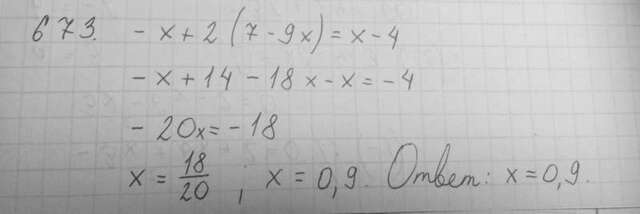 673. - x + 2 (7 - 9x) = x - 4
- x + 14 - 18x - x = - 4
- 20x = - 18
x = 18/20 ; x = 0,9. Ответ: x = 0,9.